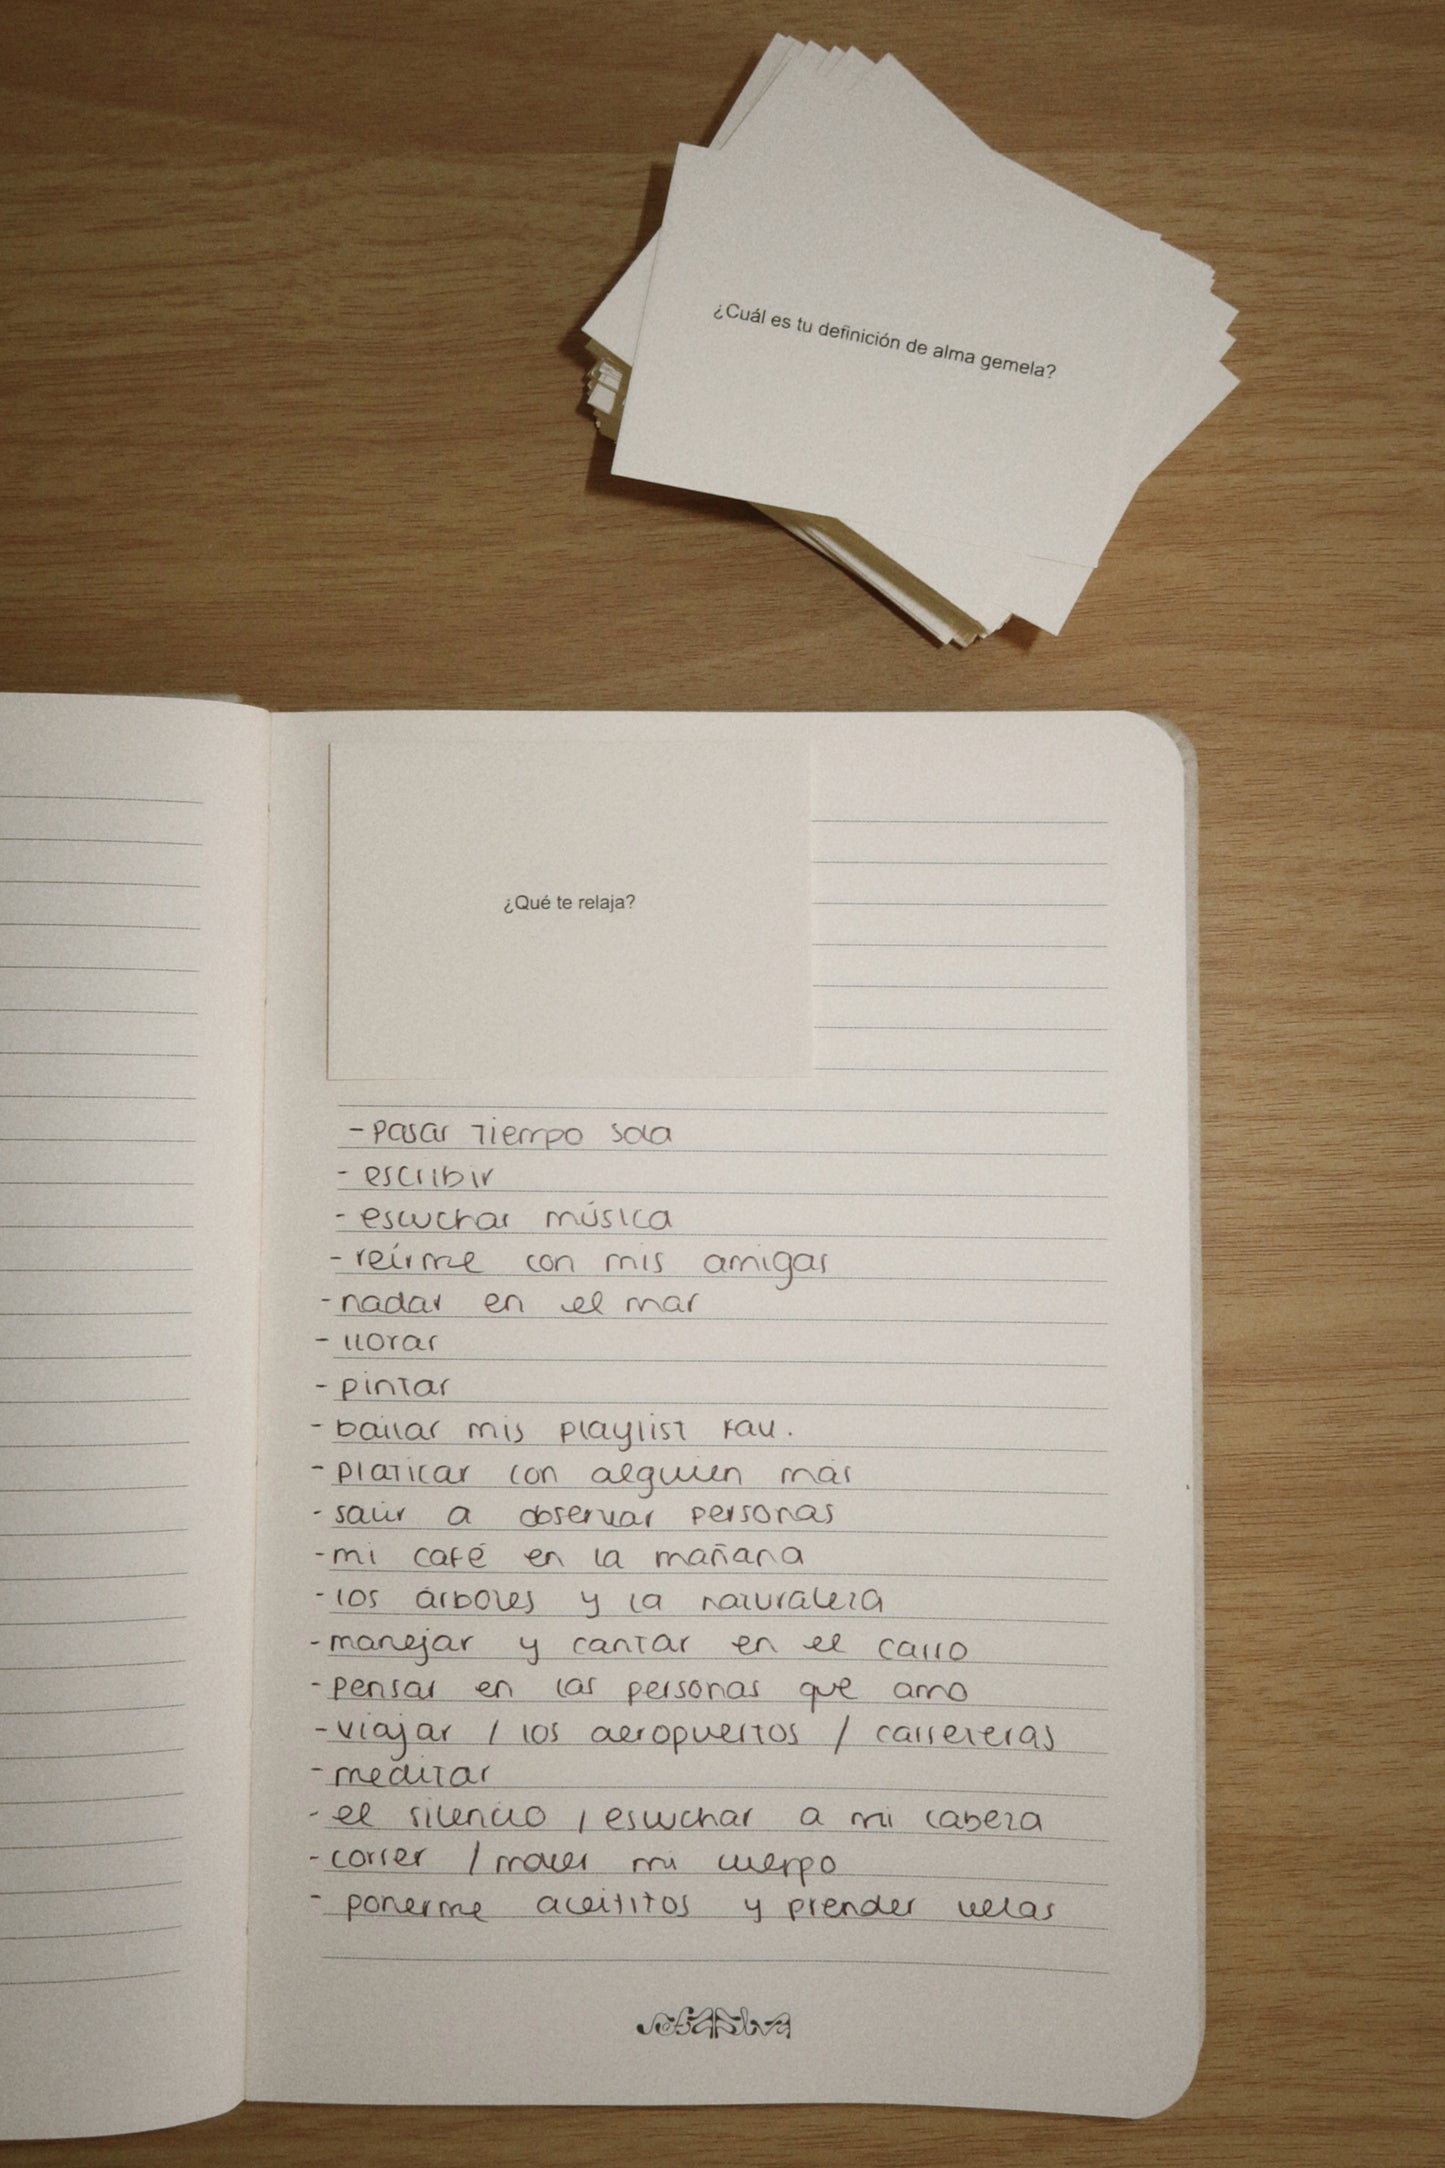 ¿Cuál es tu definición de alma gemela?
¿Qué te relaja?
- pasar tiempo sola
- escribir
- escuchar música
- reírme con mis amigas
- nadar en el mar
- llorar
- pintar
- bailar mis playlist fav.
- platicar con alguien más
- salir a observar personas
- mi café en la mañana
- los árboles y la naturaleza
- manejar y cantar en el carro
- pensar en las personas que amo
- viajar / los aeropuertos / carreteras
- meditar
- el silencio / escuchar a mi cabeza
- correr / mover mi cuerpo
- ponerme aceititos y prender velas